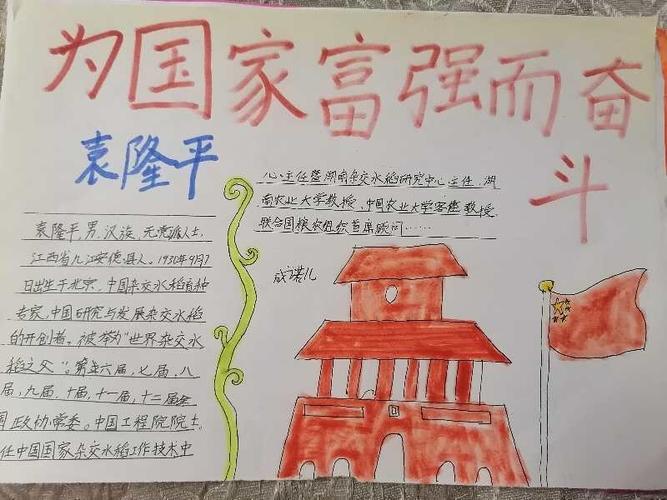 为国家富强而奋
斗
袁隆平
袁隆平,男,汉族,无党派人士,
江西省九江安德县人。1930年9月7
日出生于北京,中国杂交水稻育种
专家,中国研究与发展杂交水稻
的开创者。被举为“世界杂交水
稻之父”。第五六届,七届,八
届,九届,十届,十一届,十二届全
国政协常委。中国工程院院士。
任中国国家杂交水稻工作技术中
心主任暨湖南杂交水稻研究中心主任,湖
南农业大学教授、中国农业大学客座教授、
联合国粮农组织首席顾问……
成诺儿